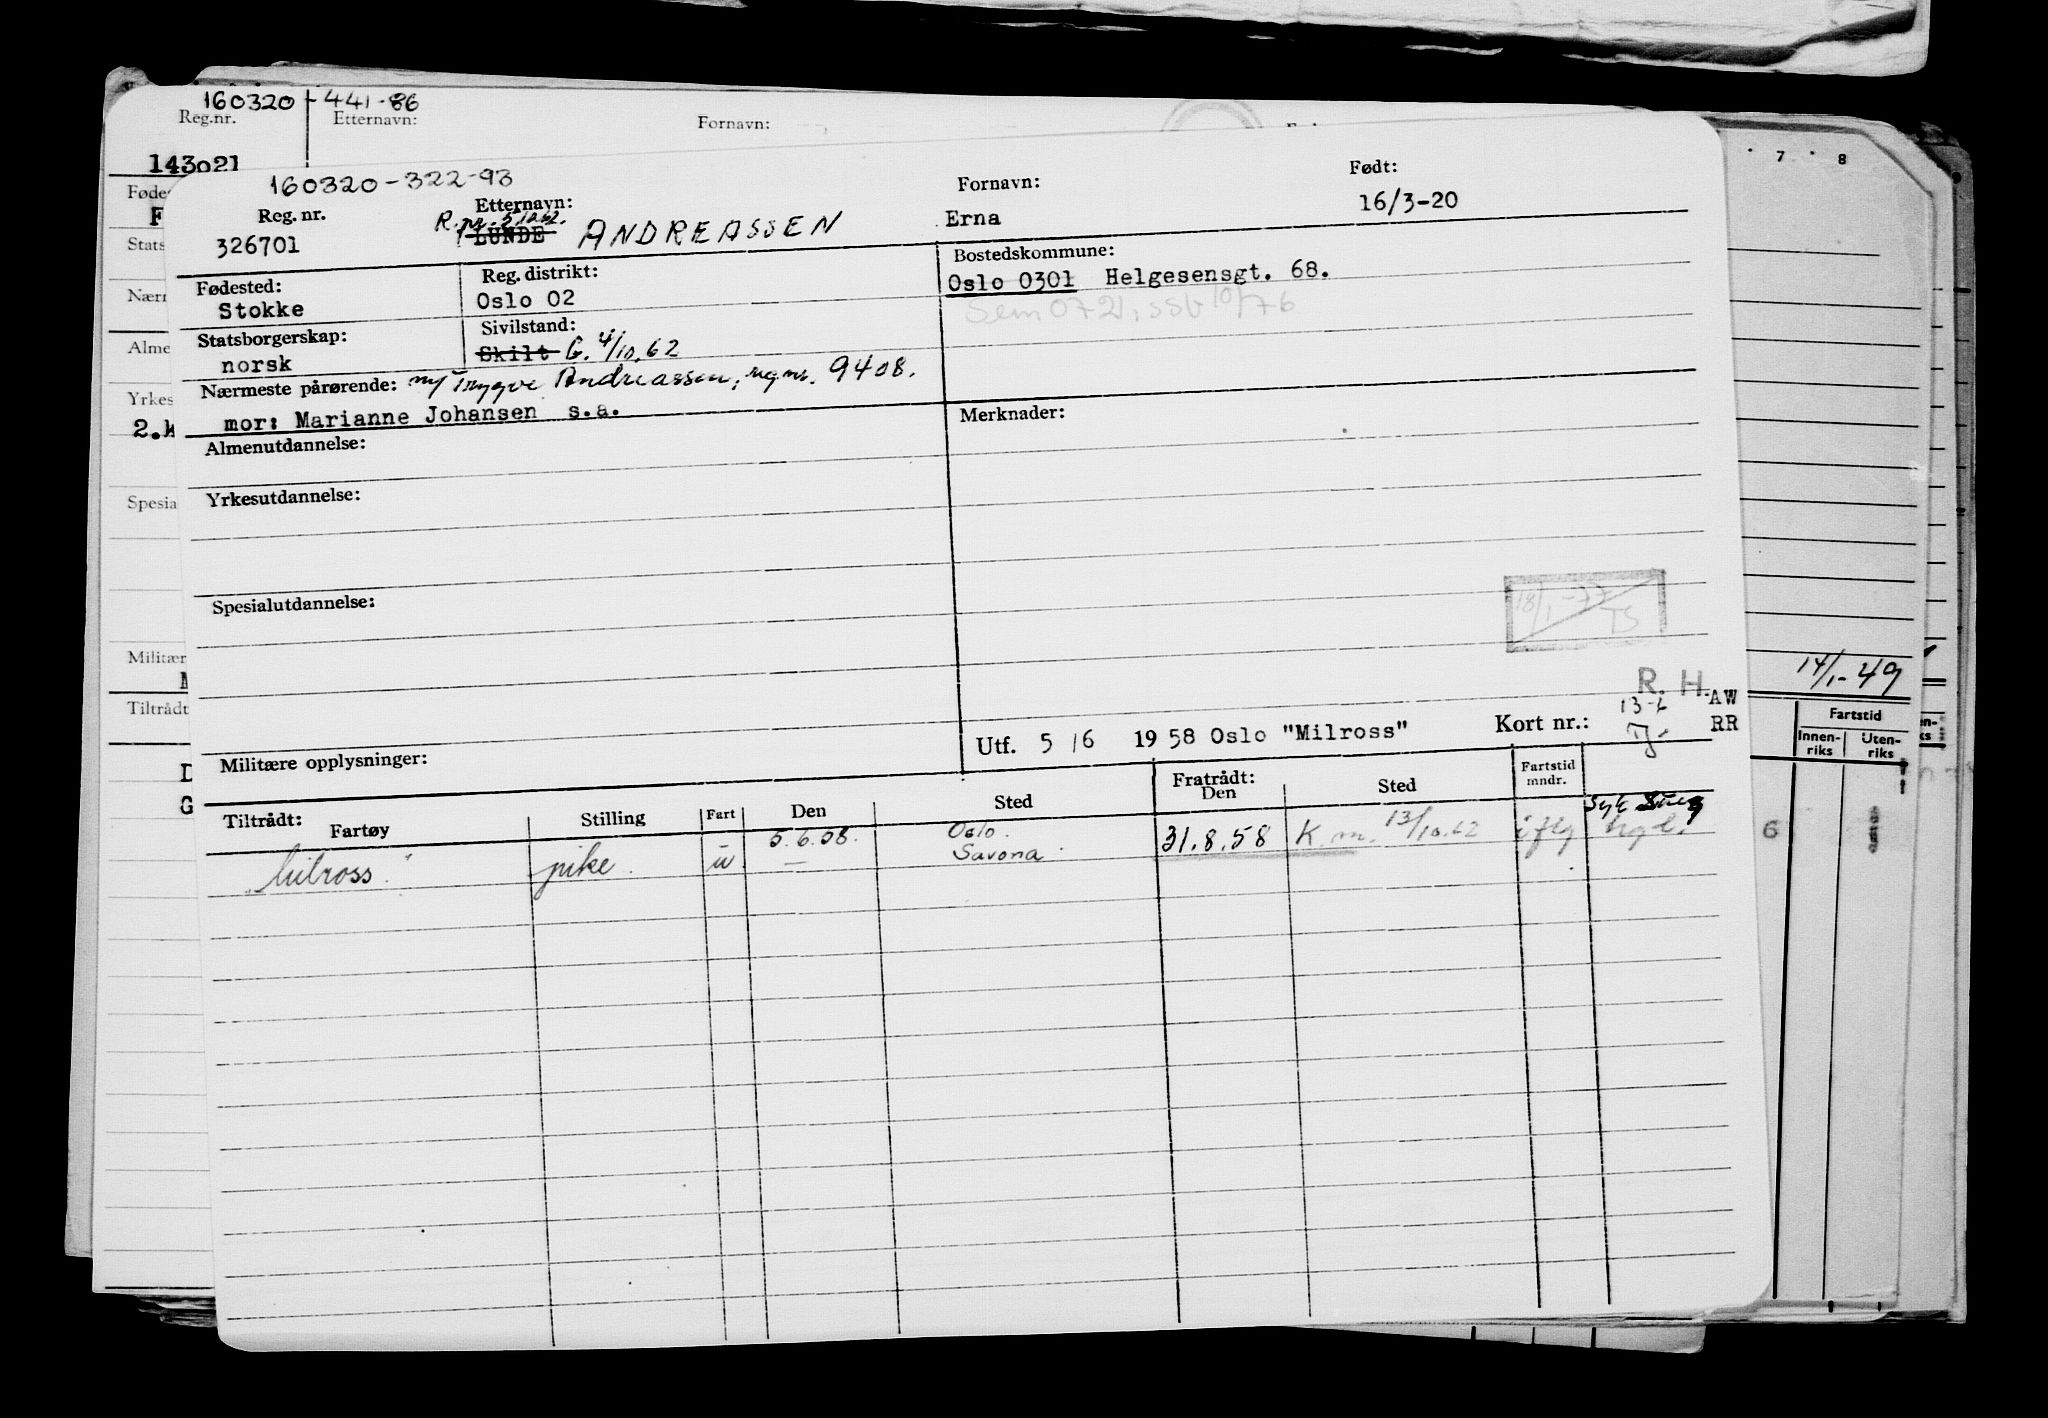 160320-441-86
Reg.nr. Etternavn: Fornavn:
143021
7 8
160320-322-93
Reg. nr. Etternavn: Fornavn: Født:
326701 LUNDE ANDREASSEN Erna 16/3-20
Fødested: Reg. distrikt: Bostedskommune:
Stokke Oslo 02 Oslo 0301 Helgesensgt. 68.
Sem 0721, ssb 10/76
Statsborgerskap: Sivilstand:
norsk Skilt G. 4/10.62
Nærmeste pårørende: m/ Trygve Andreassen, reg nr. 9408.
mor: Marianne Johansen s.a.
Almenutdannelse: Merknader:
Yrkesutdannelse:
Spesialutdannelse:
18/1-77
TS
14/1-49
R. H. AW
13-6 RR
Utf. 5/6 1958 Oslo "Milross" Kort nr.:
Militære opplysninger:
Tiltrådt: Fratrådt:
Fartøy Stilling Fart Den Sted Den Sted Fartstid mndr.
"Milross" pike u 5.6.58. Oslo. 31.8.58 K.m. 13/10.62
— Savona
Fartstid
Innen-riks Uten-riks
6
Føde
Stats
Nærm
Alme
Yrkes
2.k
Spesia
Militær
Tiltrådt
D
G